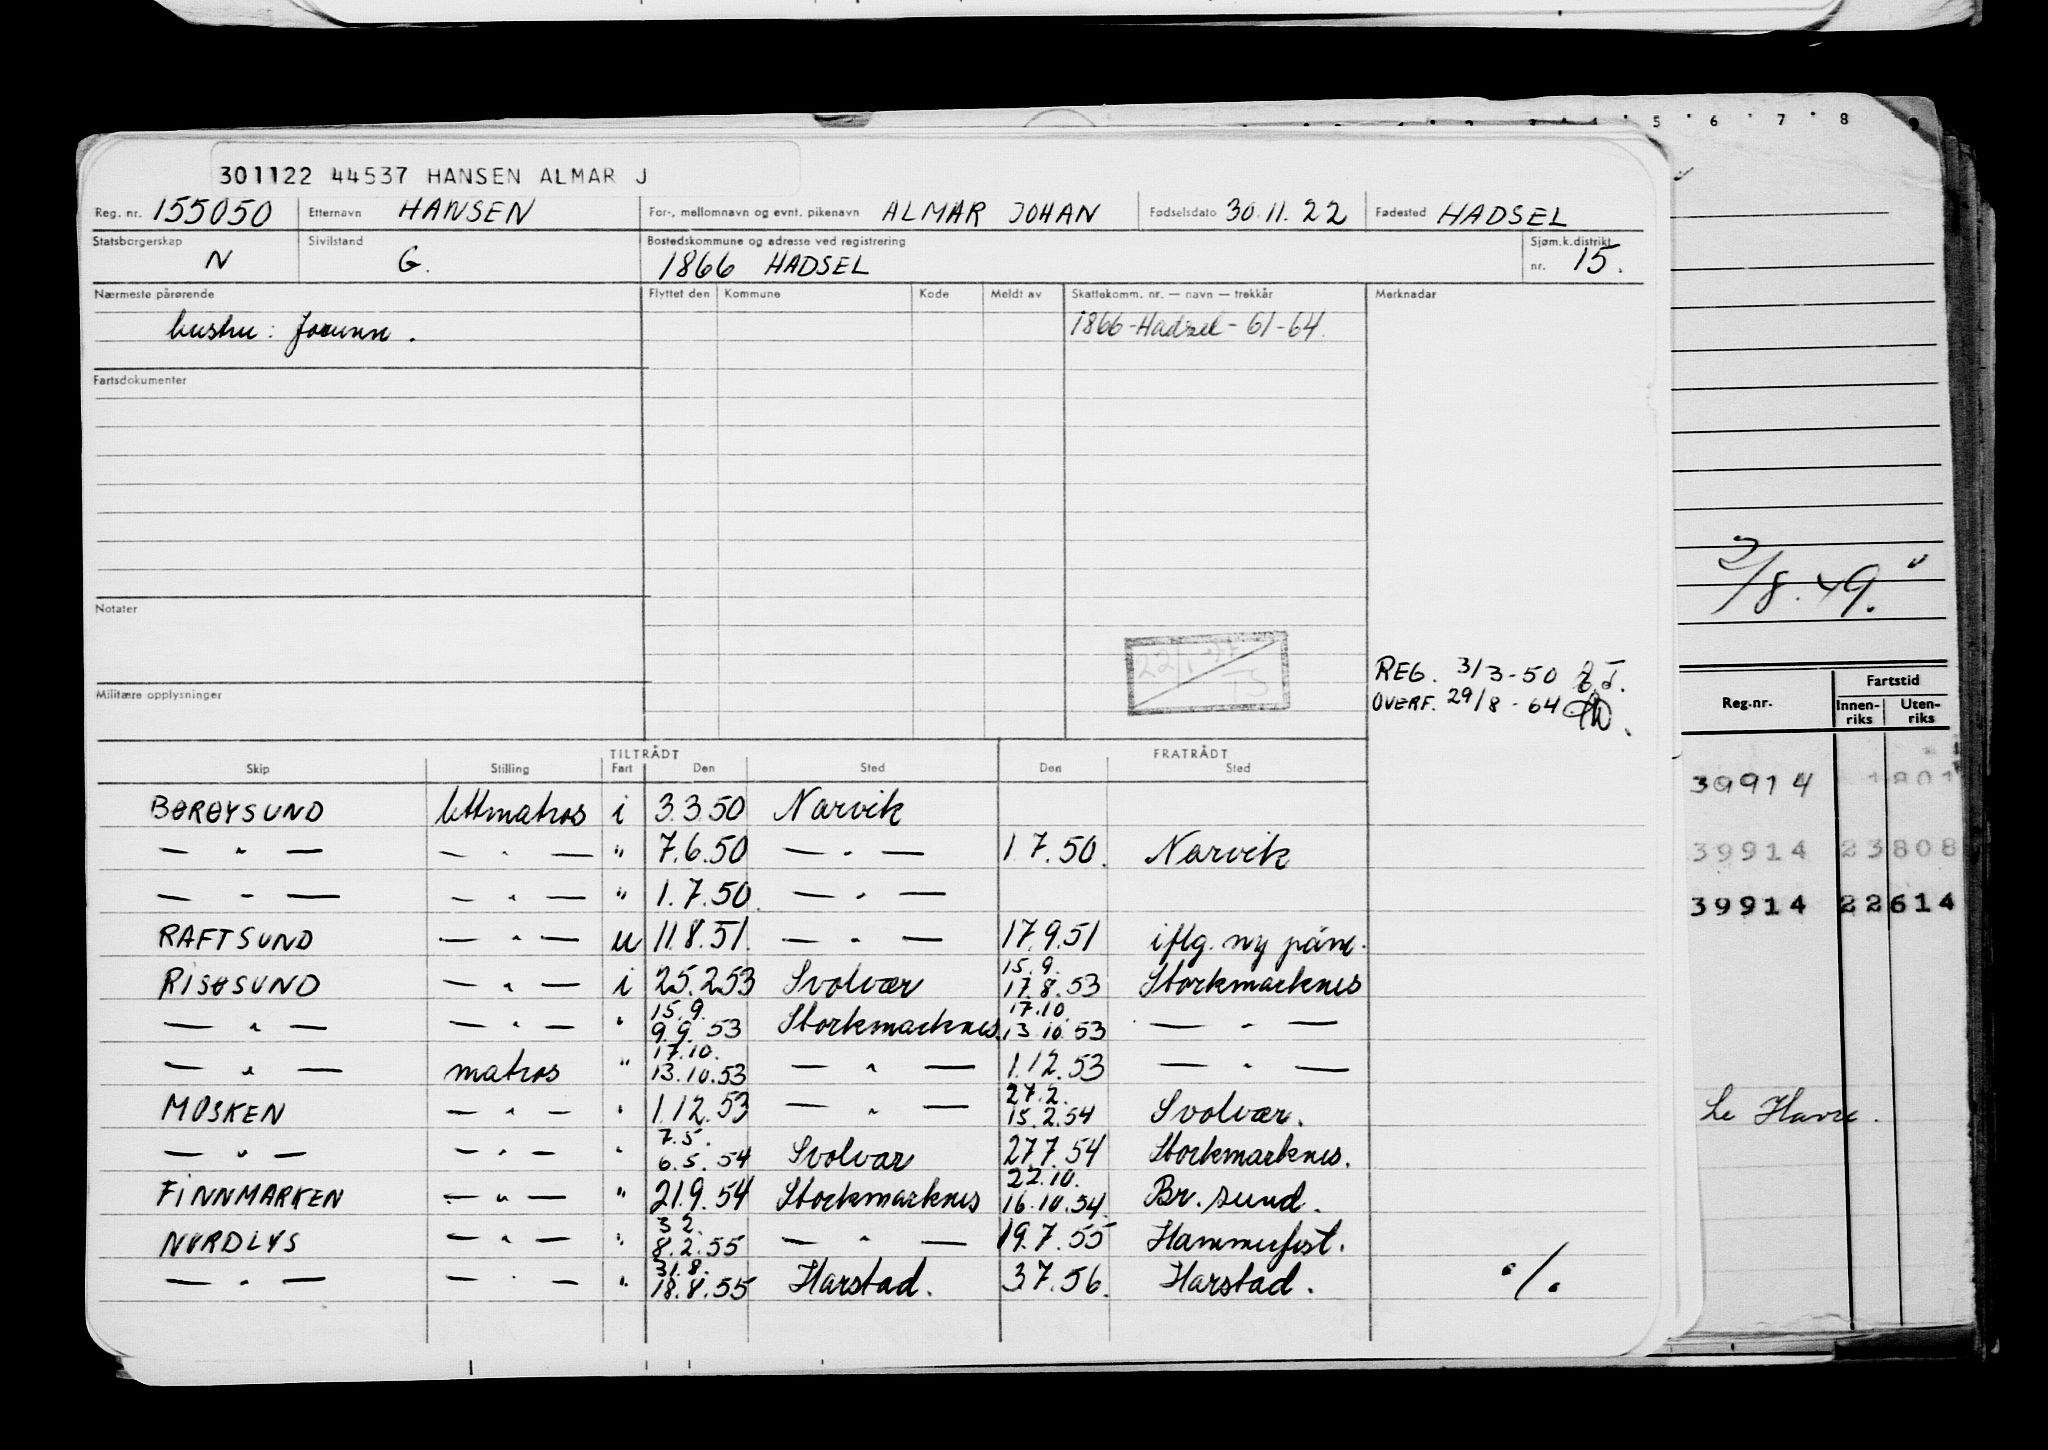 5 6 7 8 9
301122 44537 HANSEN ALMAR J
Reg. nr. 155050 Etternavn HANSEN For-, mellomnavn og evnt. pikenavn ALMAR JOHAN Fødselsdato 30.11.22 Fødested HADSEL
Statsborgerskap N Sivilstand G. Bostedskommune og adresse ved registrering 1866 HADSEL Sjøm.k.distrikt nr. 15.
Nærmeste pårørende Flyttet den Kommune Kode Meldt av Skattekomm. nr. — navn — trekkår Merknader
hustru: Jorunn. 1866-Hadsel-61-64.
Fartsdokumenter
Notater
Militære opplysninger
REG. 3/3-50
OVERF. 29/8-64
TILTRÅDT FRATRÅDT
Skip Stilling Fart Den Sted Den Sted
BØRØYSUND lettmatros i 3.3.50 Narvik
— " — — " — " 7.6.50 — " — 1.7.50. Narvik
— " — — " — " 1.7.50. — " —
RAFTSUND — " — u 11.8.51. — " — 17.9.51 iflg. ny påm.
15.9.
RISØSUND — " — i 25.2.53 Svolvær 17.8.53 Stockmarknes
15.9. 17.10.
— " — — " — " 9.9.53 Stockmarknes. 13.10.53 — " —
17.10.
— " — matros " 13.10.53 — " — 1.12.53 — " —
27.2.
MOSKEN — " — " 1.12.53 — " — 15.2.54 Svolvær.
7.5.
— " — — " — " 6.5.54 Svolvær 27.7.54 Stockmarknes.
22.10.
FINNMARKEN — " — " 21.9.54 Stockmarknes 16.10.54. Br. sund.
3.2.
NORDLYS — " — " 8.2.55 — " — 19.7.55 Hammerfest.
31.8.
— " — — " — " 18.8.55 Harstad. 3.7.56. Harstad. ·/.
2/8.49.
Reg.nr. Fartstid
Innen-riks Uten-riks
39914 1801
39914 23808
39914 22614
Le Havre.